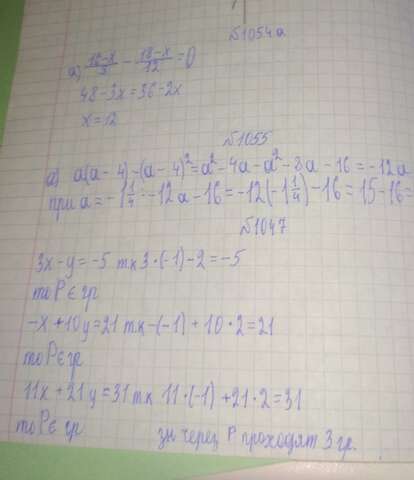 №1054а
а) (16-x)/8 - (18-x)/12 = 0
48-3x=36-2x
x=12
№1055
а) a(a-4)-(a-4)²=a²-4a-a²-8a-16=-12a
при a=-1 1/4 =-12a-16=-12(-1 1/4)-16=15-16=
№1047
3x-y=-5 т.к 3·(-1)-2=-5
то P∈гр
-x+10y=21 т.к -(-1)+10·2=21
то P∈гр
11x+21y=31 т.к 11·(-1)+21·2=31
то P∈гр зн через P проходят 3 гр.